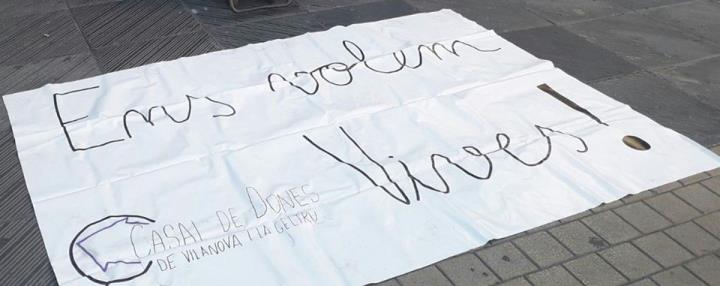 Ens volem
Vives!
CASAL DE DONES
DE VILANOVA I LA GELTRÚ